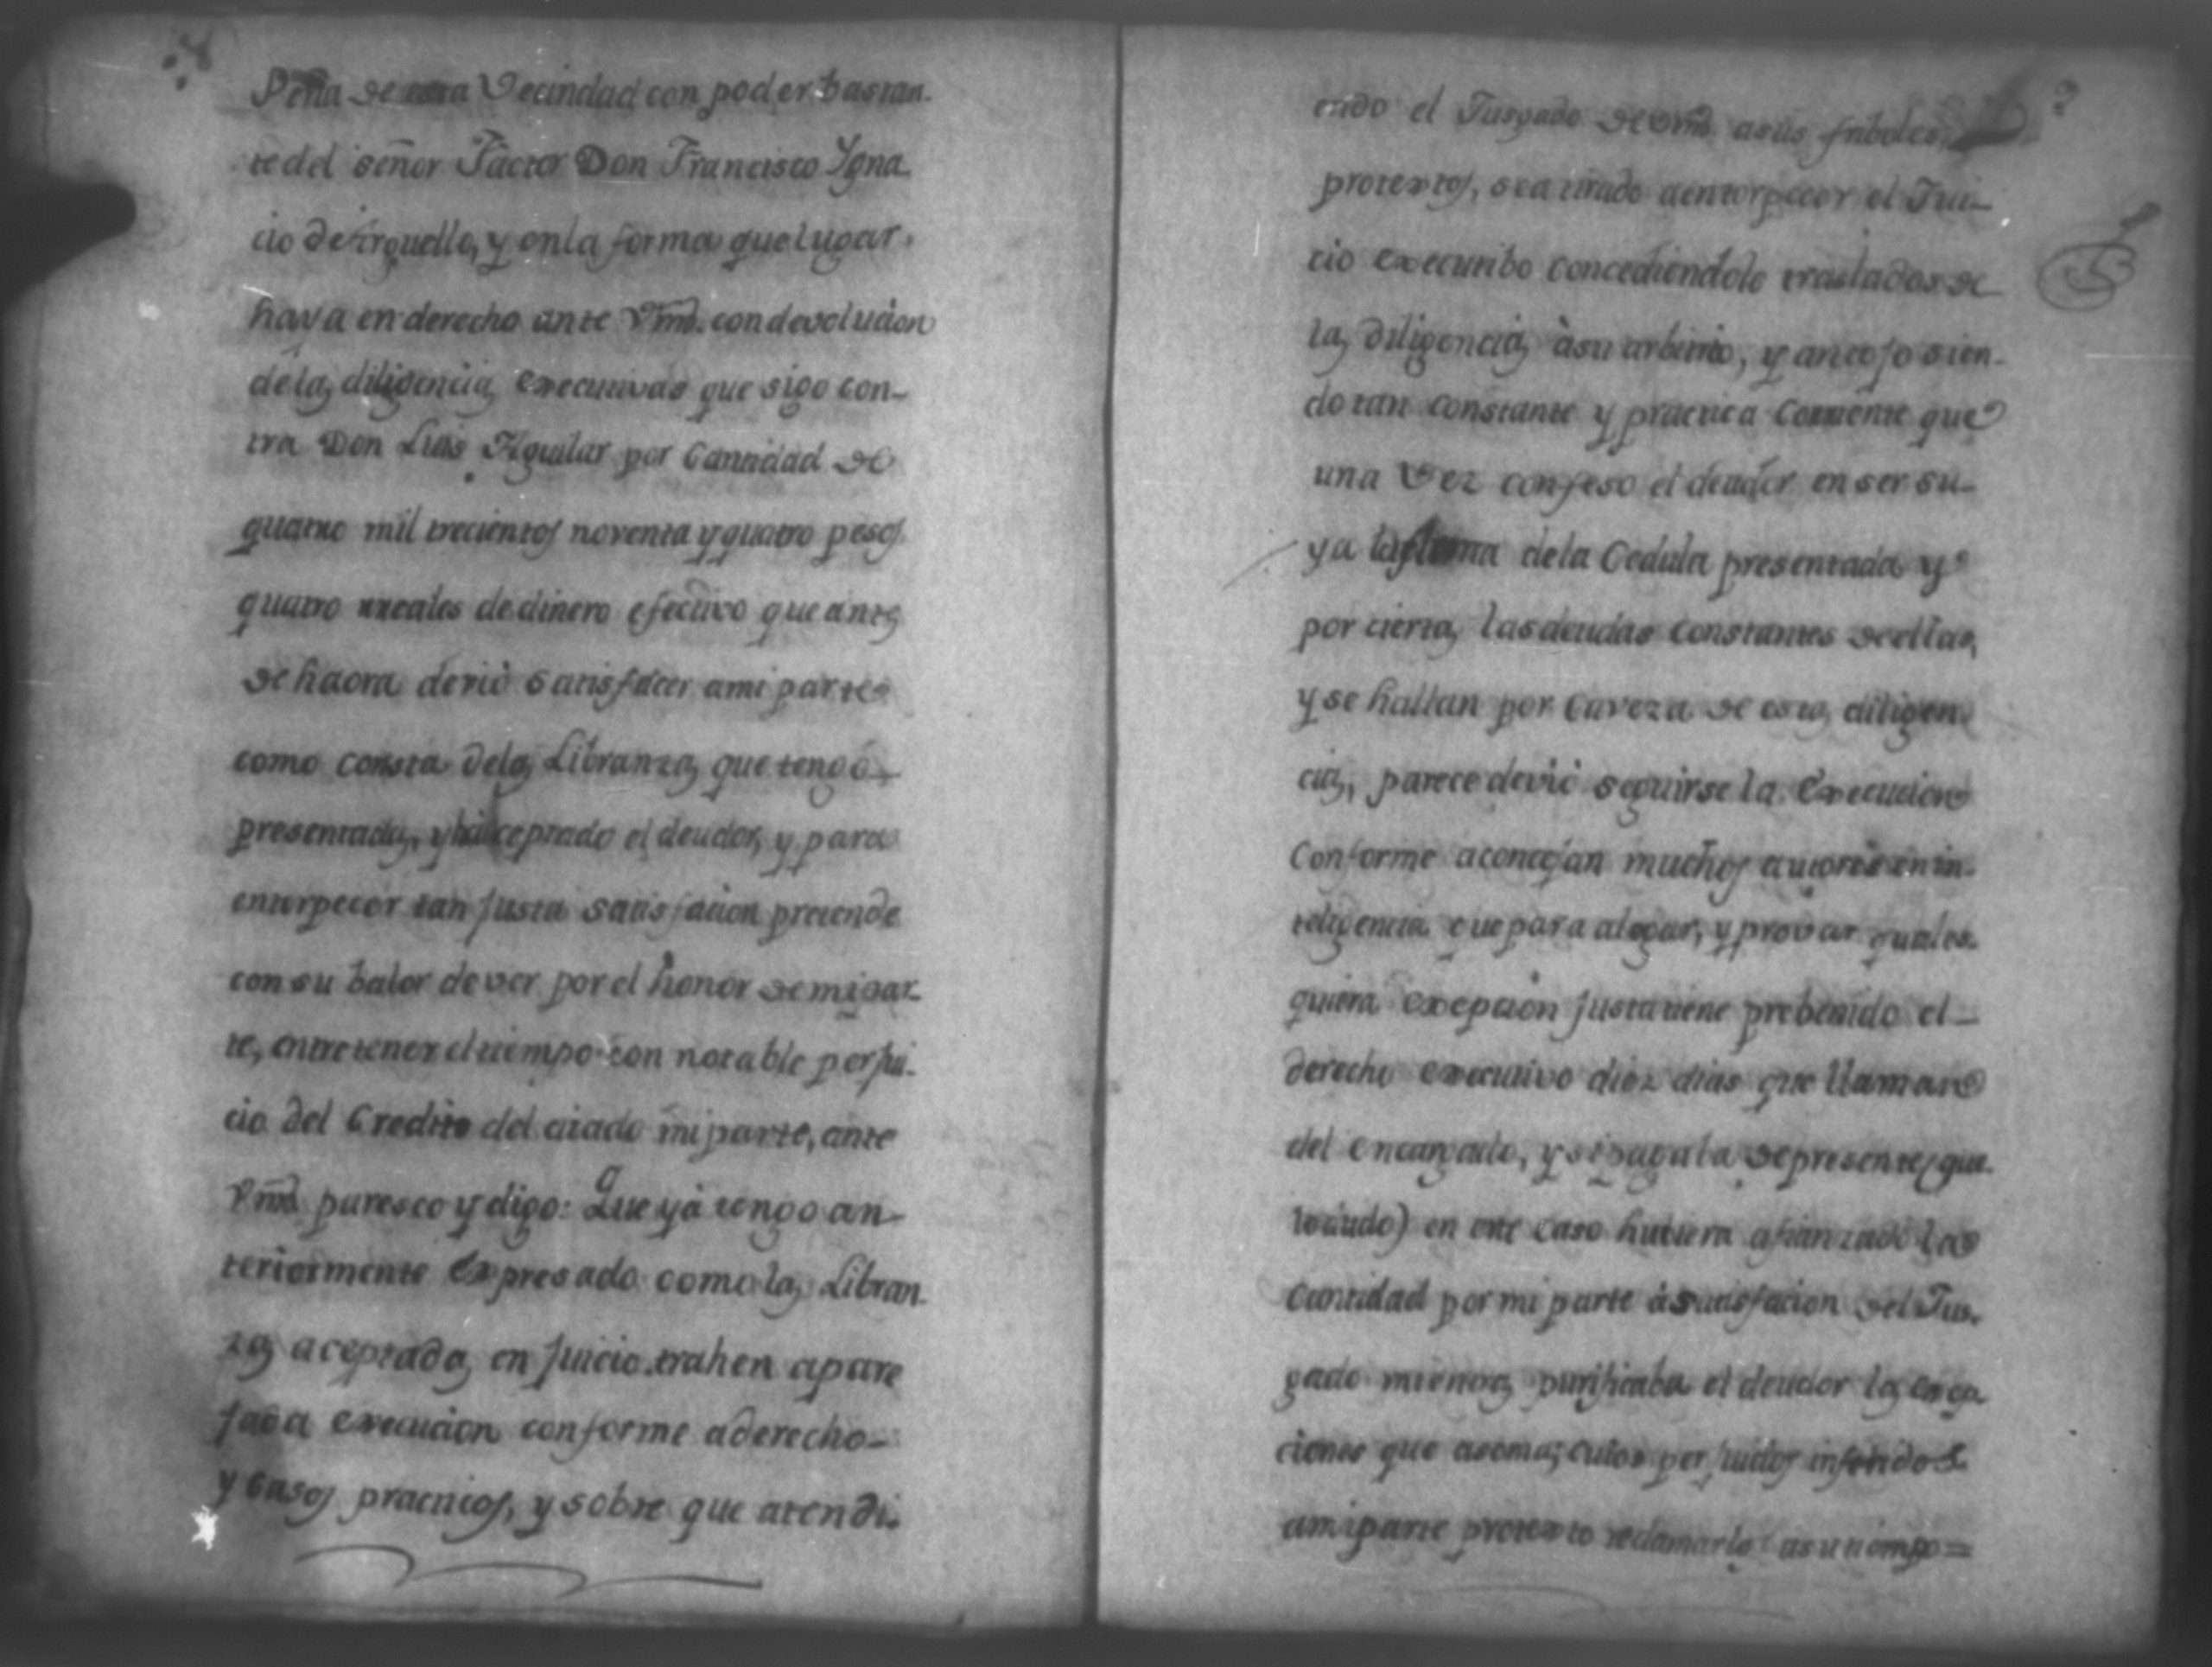 Peña de esta Vecindad con poder bastan-
te del señor Factor Don Francisco Ygna
cio de y en la forma que lugar
haya en derecho ante Vmd. con devolucion
de las diligencias executivas que sigo con-
tra Don Luis Aguilar por Cantidad de
quatro mil trecientos noventa y quatro pesos
quatro rreales de dinero efectivo que antes
de haora devió satisfacer a mi parte
como consta de las Libranzas que tengo
presentadas, y ha aceptado el deudor, y para
entorpecer tan justa satisfacion pretende
con su balor de ver por el honor de mi par-
te, entretener el tiempo con notable perjui-
cio del Credito del citado mi parte, ante
Vmd. paresco y digo: Que yá tengo an-
teriormente Expresado como las Libran-
zas aceptadas en juicio trahen apare
jada execucion conforme a derecho
y casos practicos, y sobre que atendi-
endo el Jusgado de Vmd. a sus fribolos
protextos, se a tirado a entorpecer el Jui-
cio executibo concediendole traslados de
las diligencias à su arbitrio, y antojo sien-
do tan constante y practica Corriente que
una Vez confeso el deudor en ser su-
ya la firma de la Cedula presentada y
por ciertas las deudas constantes de ellas,
y se hallan por Caveza de estas diligen-
cias, parece devió seguirse la Execucion
Conforme aconsejan muchos autores en in-
teligencia que para alegar, y provar quales-
quiera excepcion justa tiene prebenido el
derecho executivo diez dias que llaman
del encargado, y si
en este caso huviera afianzado la
Cantidad por mi parte à satisfacion del Jus-
gado mientras purificaba el deudor las Excep-
ciones que asoma; cuios perjuicios inferidos
a mi parte protexto reclamarlos a su tiempo=